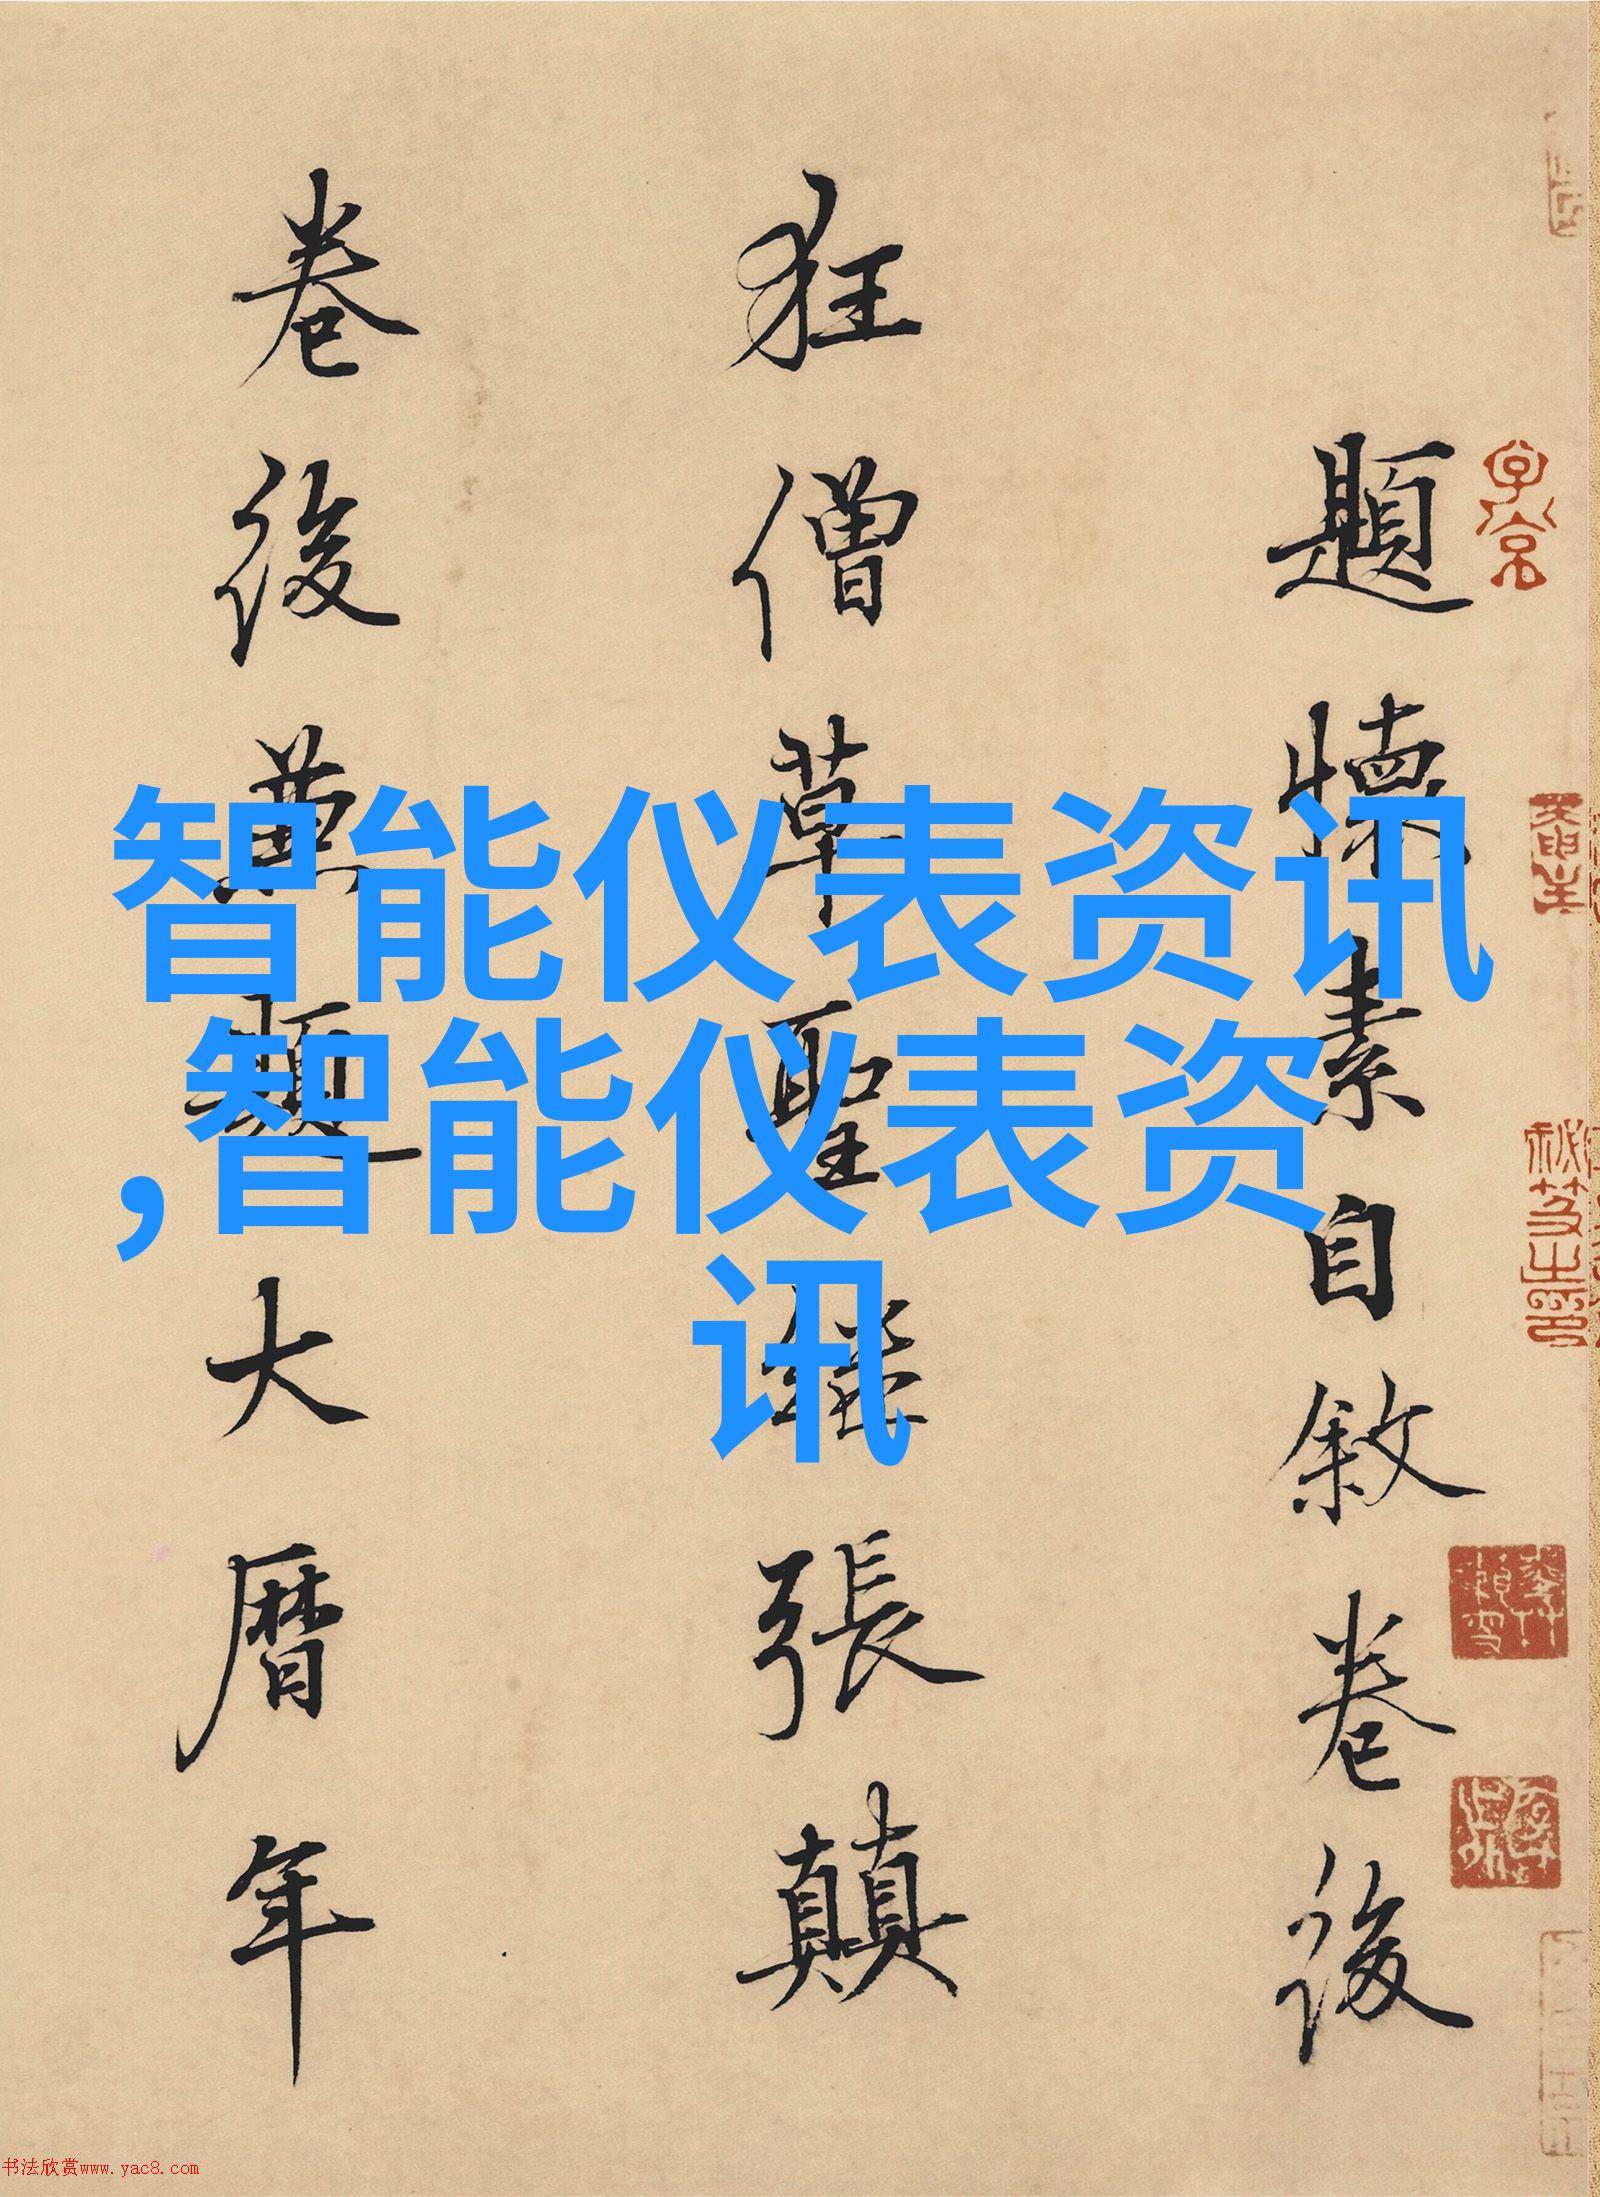 題懷素自敘卷後
狂僧草聖繼張顛
卷後兼題大曆年
智能仪表资讯
,智能仪表资
讯
书法欣赏www.yac8.com